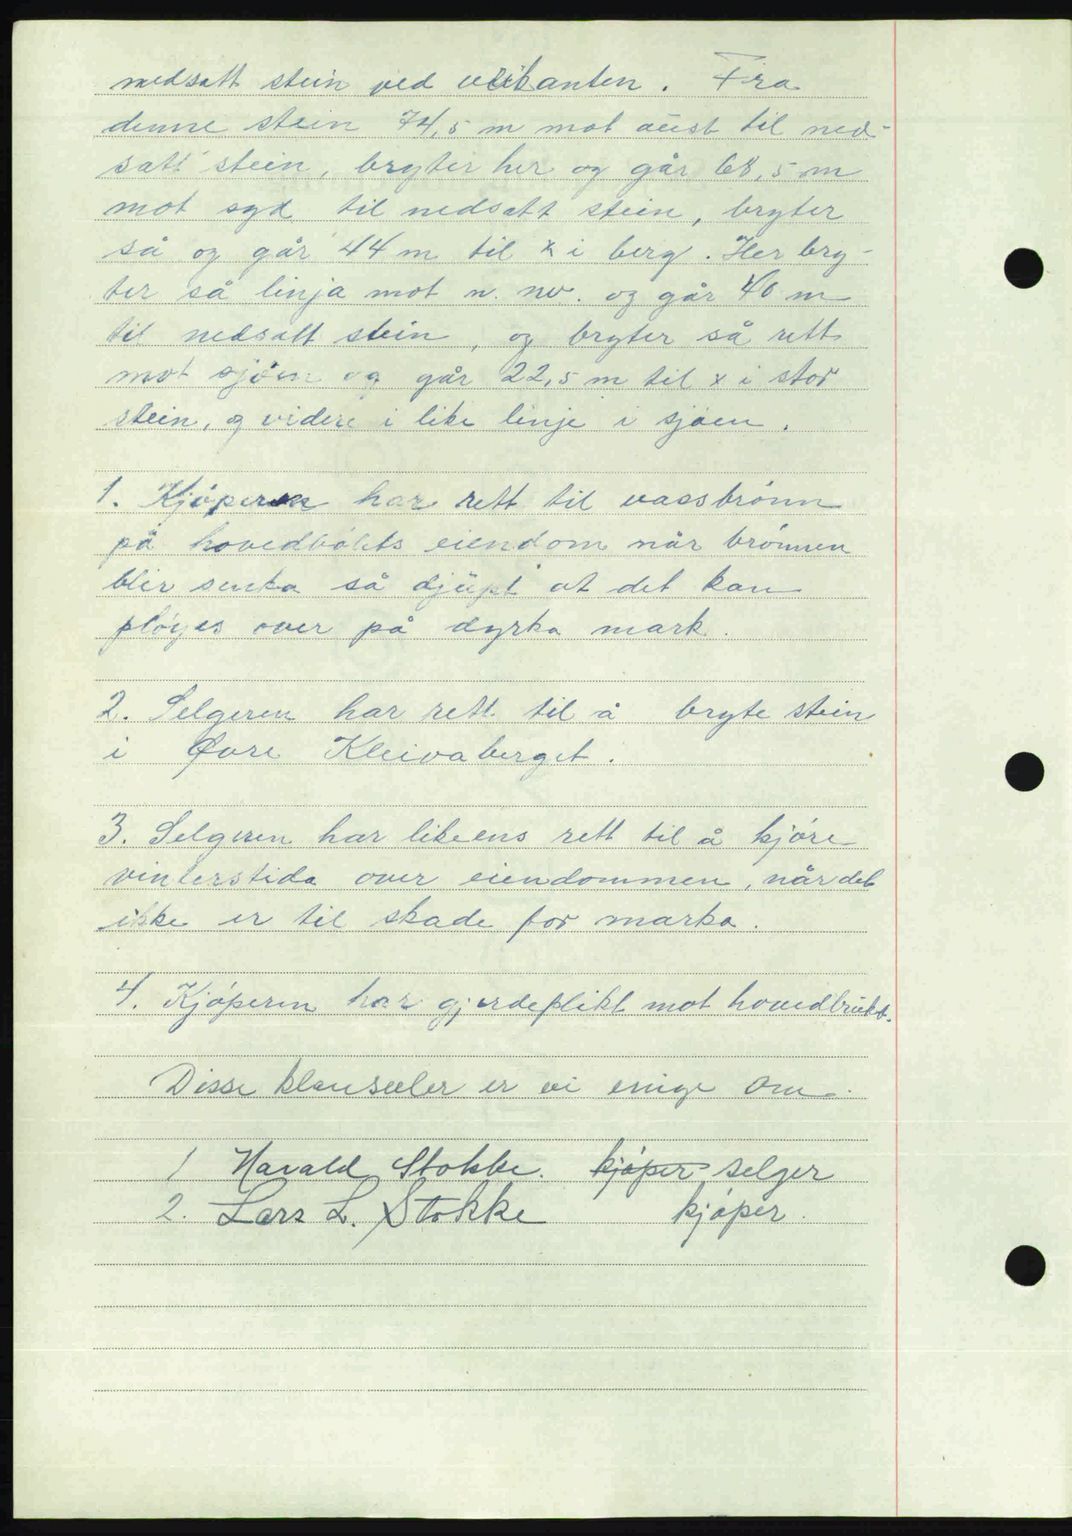 nedsatt stein ved veikanten. Fra
denne stein 74,5 m mot aust til ned-
satt stein, bryter her og går 68,5 m
mot syd til nedsatt stein, bryter
så og går 44 m til x i berg. Her bry-
ter så linja mot n. nv. og går 40 m
til nedsatt stein, og bryter så rett
mot sjøen og går 22,5 m til x i stor
stein, og videre i like linje i sjøen.
1. Kjøperen har rett til vassbrønn
på hovedbølets eiendom når brønnen
blir senka så djupt at det kan
pløyes over på dyrka mark.
2. Selgeren har rett til å bryte stein
i Øvre Kleivaberget.
3. Selgeren har likeens rett til å kjøre
vinterstida over eiendommen, når det
ikke er til skade for marka.
4. Kjøperen har gjerdeplikt mot hovedbruket.
Disse klausuler er vi enige om.
1 Harald Stokke. kjøper selger
2. Lars L. Stokke kjøper.